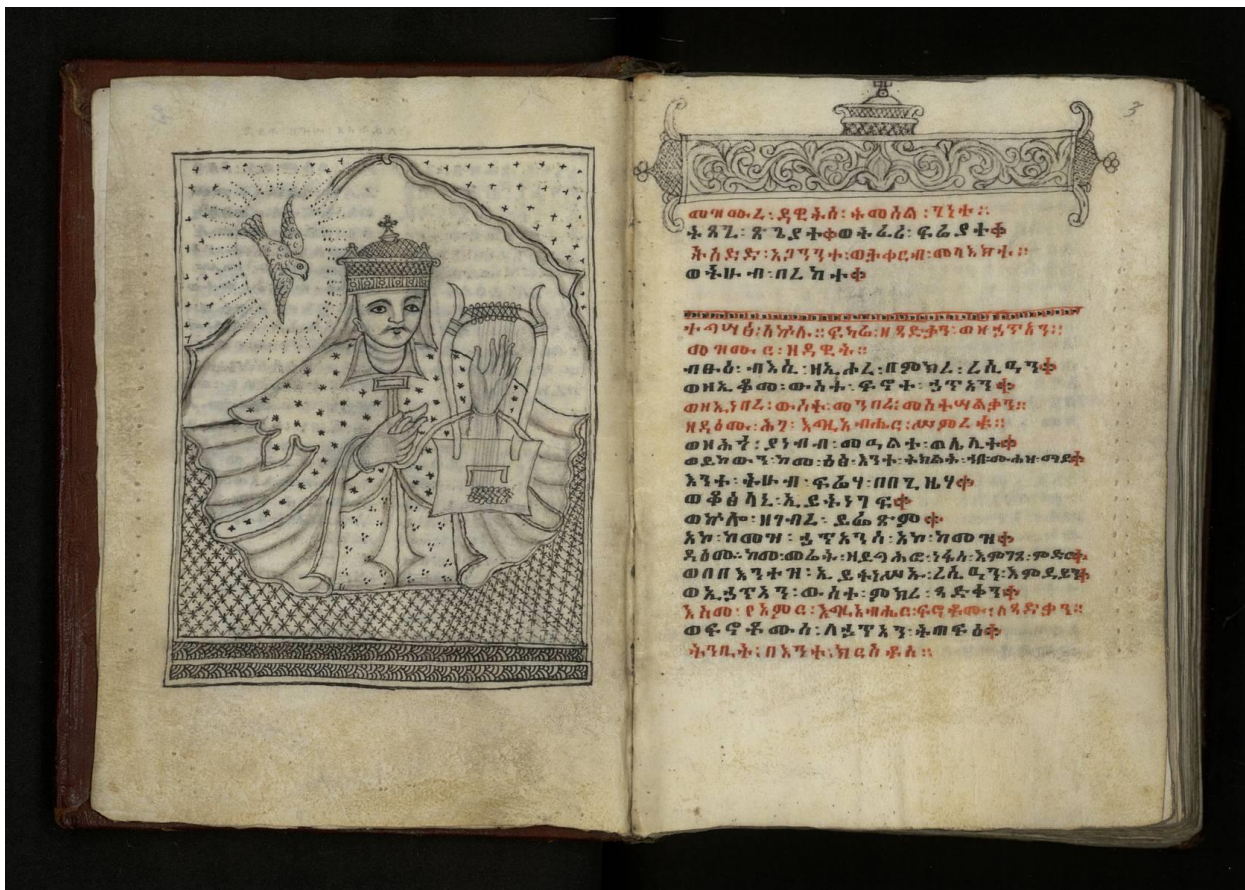 3
መዝሙረ፡ዳዊትሰ፡ትመስል፡ገነተ።
ትጸጊ፡ጽጌያተ፨ወትፈሪ፡ፍሬያተ፨
ትሰድድ፡አጋንንተ፡ወታቀርብ፡መላእክተ።
ወትሁብ፡በረከተ፨
ተጣሥፀ፡ለኵሉ።ፍካሬ፡ዘጻድቃን፡ወዘኃጥአን።
መዝሙር፡ዘዳዊት።
ብፁዕ፡ብእሲ፡ዘኢሐረ፡በምክረ፡ረሲዓን፨
ወዘኢቆመ፡ውስተ፡ፍኖተ፡ኃጥአን፨
ወዘኢነበረ፡ውስተ፡መንበረ፡መስተሣልቃን።
ዘዳዕሙ፡ሕገ፡እግዚአብሔር፡ሥምረቱ።
ወዘሕጎ፡ያነብብ፡መዓልተ፡ወሌሊተ፨
ወይከውን፡ከመ፡ዕፅ፡እንተ፡ትክልት፡ኀበ፡ሙሐዘ፡ማይ፨
እንተ፡ትሁብ፡ፍሬሃ፡በበጊዜሃ፨
ወቆፅላኒ፡ኢይትነገፍ፨
ወኵሎ፡ዘገብረ፡ይፌጽም፨
አኮ፡ከመዝ፡ኃጥአንሰ፡አኮ፡ከመዝ፨
ዳዕሙ፡ከመ፡መሬት፡ዘይግሕፎ፡ነፋስ፡እምገጸ፡ምድር፨
ወበበእንተዝ፡ኢይትነሥኡ፡ረሲዓን፡እምደይን፨
ወኢኃጥአን፡ውስተ፡ምክረ፡ጻድቃን፨
እስመ፡የአምር፡እግዚአብሔር፡ፍኖቶሙ፡ለጻድቃን።
ወፍኖቶሙሰ፡ለኃጥአን፡ትጠፍዕ፨
ትንቢት፡በእንተ፡ክርስቶስ።